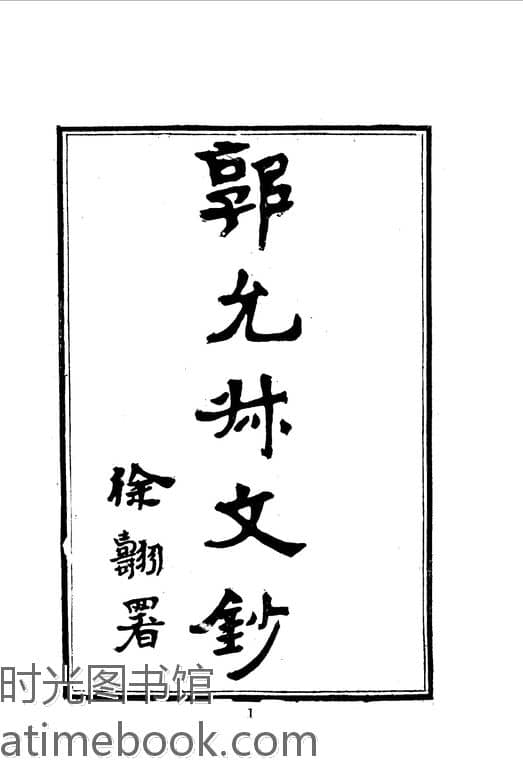 郭允叔文鈔
徐翿署
时光图书馆
1
atimebook.com